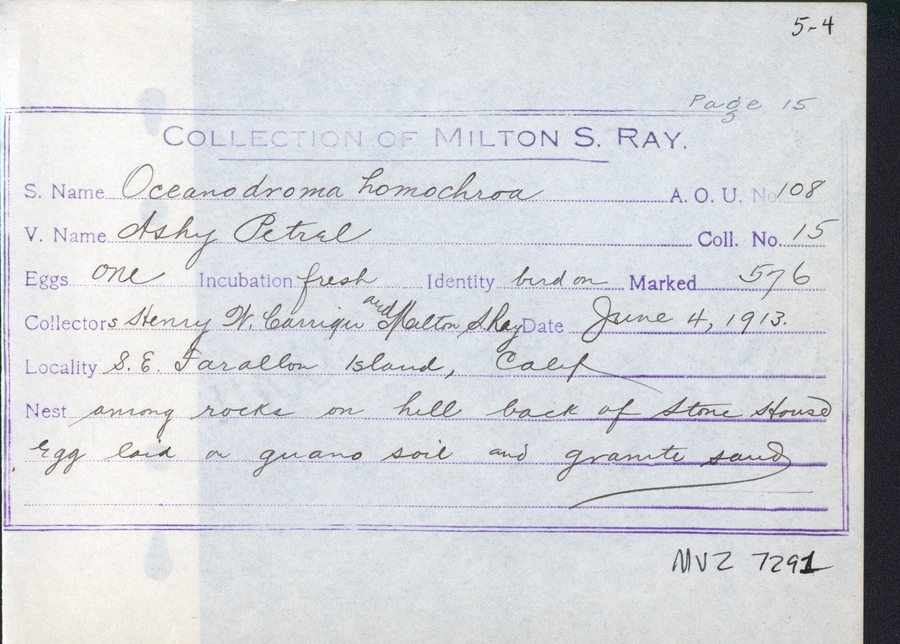 5-4
Page 15
COLLECTION OF MILTON S. RAY.
S. Name Oceanodroma homochroa A. O. U. No 108
V. Name Ashy Petrel Coll. No. 15
Eggs one Incubation fresh Identity bird on Marked 576
Collectors Henry W. Carriger and Milton S. Ray Date June 4, 1913.
Locality S. E. Farallon Island, Calif
Nest among rocks on hill back of Stone House
Egg laid on guano soil and granite sand
MVZ 7291